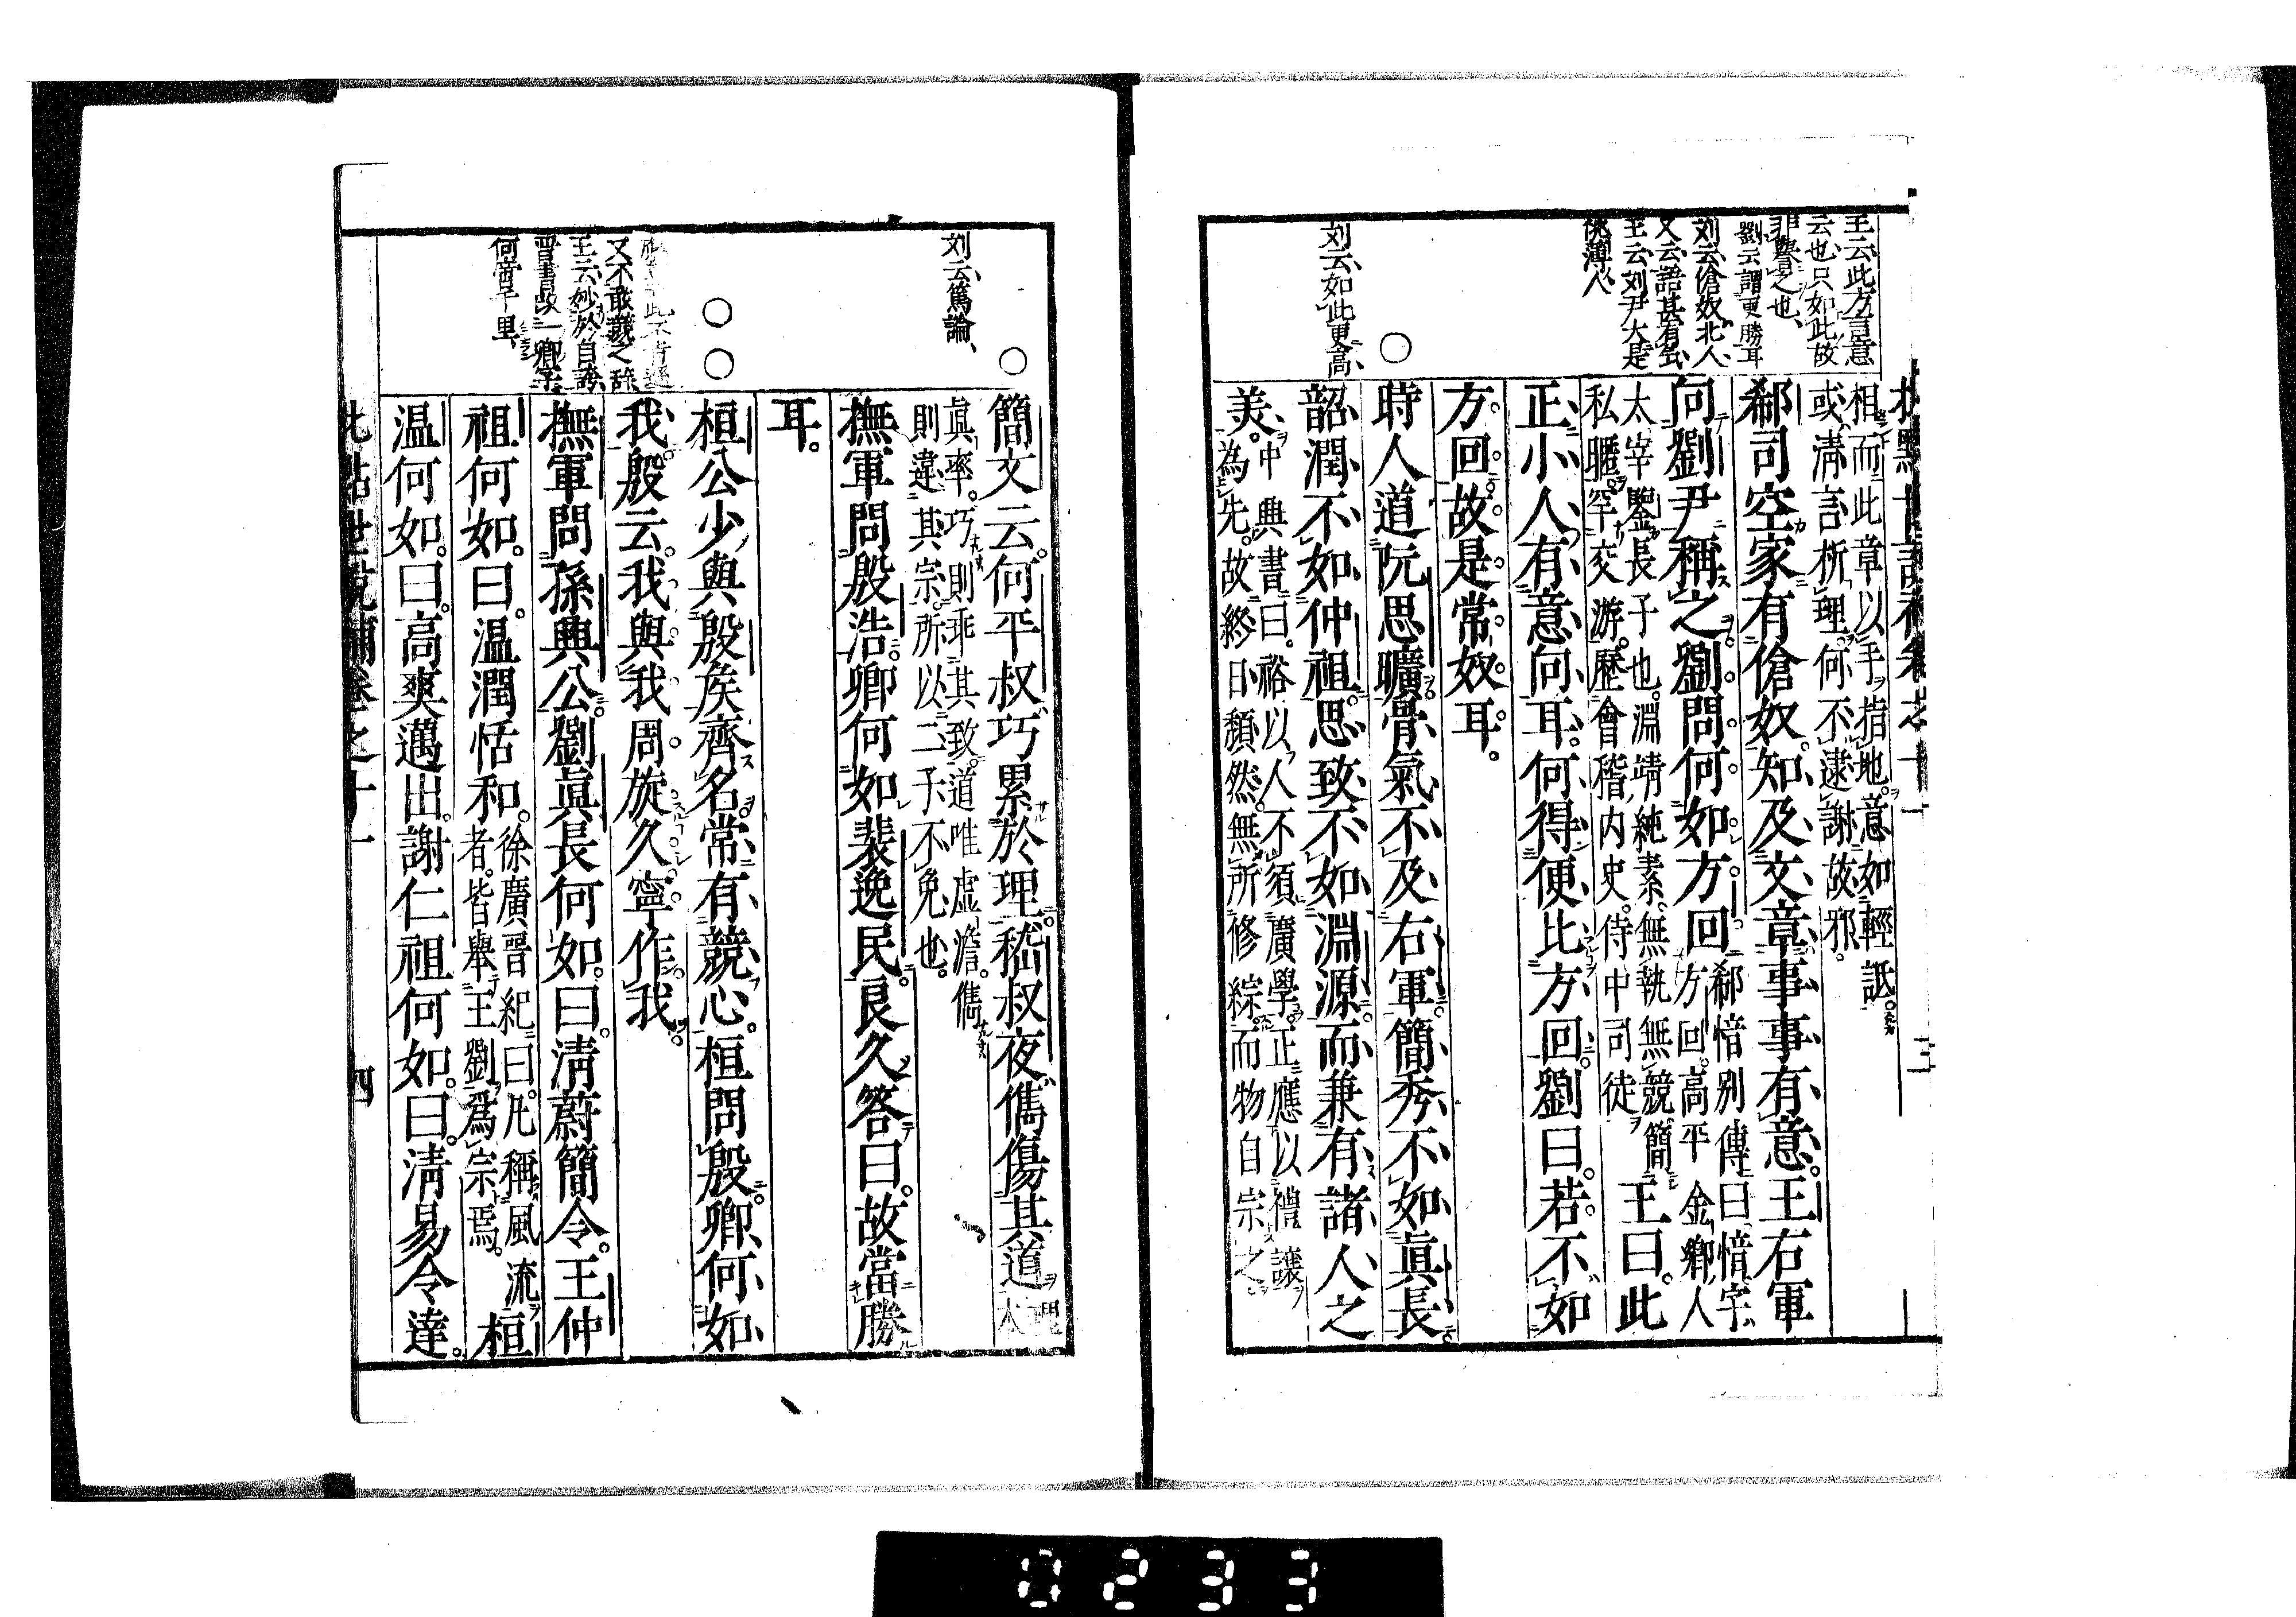 王云此方言意
云也只如此故
非譽之也
劉云謂更勝耳
刘云傖奴北人
又云語甚有
王云刘尹大是
佻薄人
刘云如此更高
相而此章以手指地意如輕詆
或清言析理何不逮謝故邪
郗司空家有傖奴知及文章事事有意王右軍
向劉尹稱之劉問何如方回郗愔別傳曰愔字方回高平金鄉人
太宰鑒長子也淵靖純素無執無競簡
私暱罕交游歷會稽内史侍中司徒
王曰此
正小人有意向耳何得便比方回劉曰若不如
方回故是常奴耳
時人道阮思曠骨氣不及右軍簡秀不如眞長
韶潤不如仲祖思致不如淵源而兼有諸人之
美中興書曰裕以人不須廣學正應以禮讓
為先故終日頹然無所修綜而物自宗之
三
刘云篤論
又不敢競之辭
王云妙於自誇
晋書改一卿字
何啻千里
簡文云何平叔巧累於理嵇叔夜儁傷其道理本
眞率巧則乖其致道唯虛澹儁
則違其宗所以二子不免也
撫軍問殷浩卿何如裴逸民良久答曰故當勝
耳
桓公少與殷矦齊名常有競心桓問殷卿何如
我殷云我與我周旋久寧作我
撫軍問孫興公劉眞長何如曰清蔚簡令王仲
祖何如曰温潤恬和徐廣晋紀曰凡稱風流
者皆舉王劉爲宗焉
桓
温何如曰高爽邁出謝仁祖何如曰清易令達
四
0233